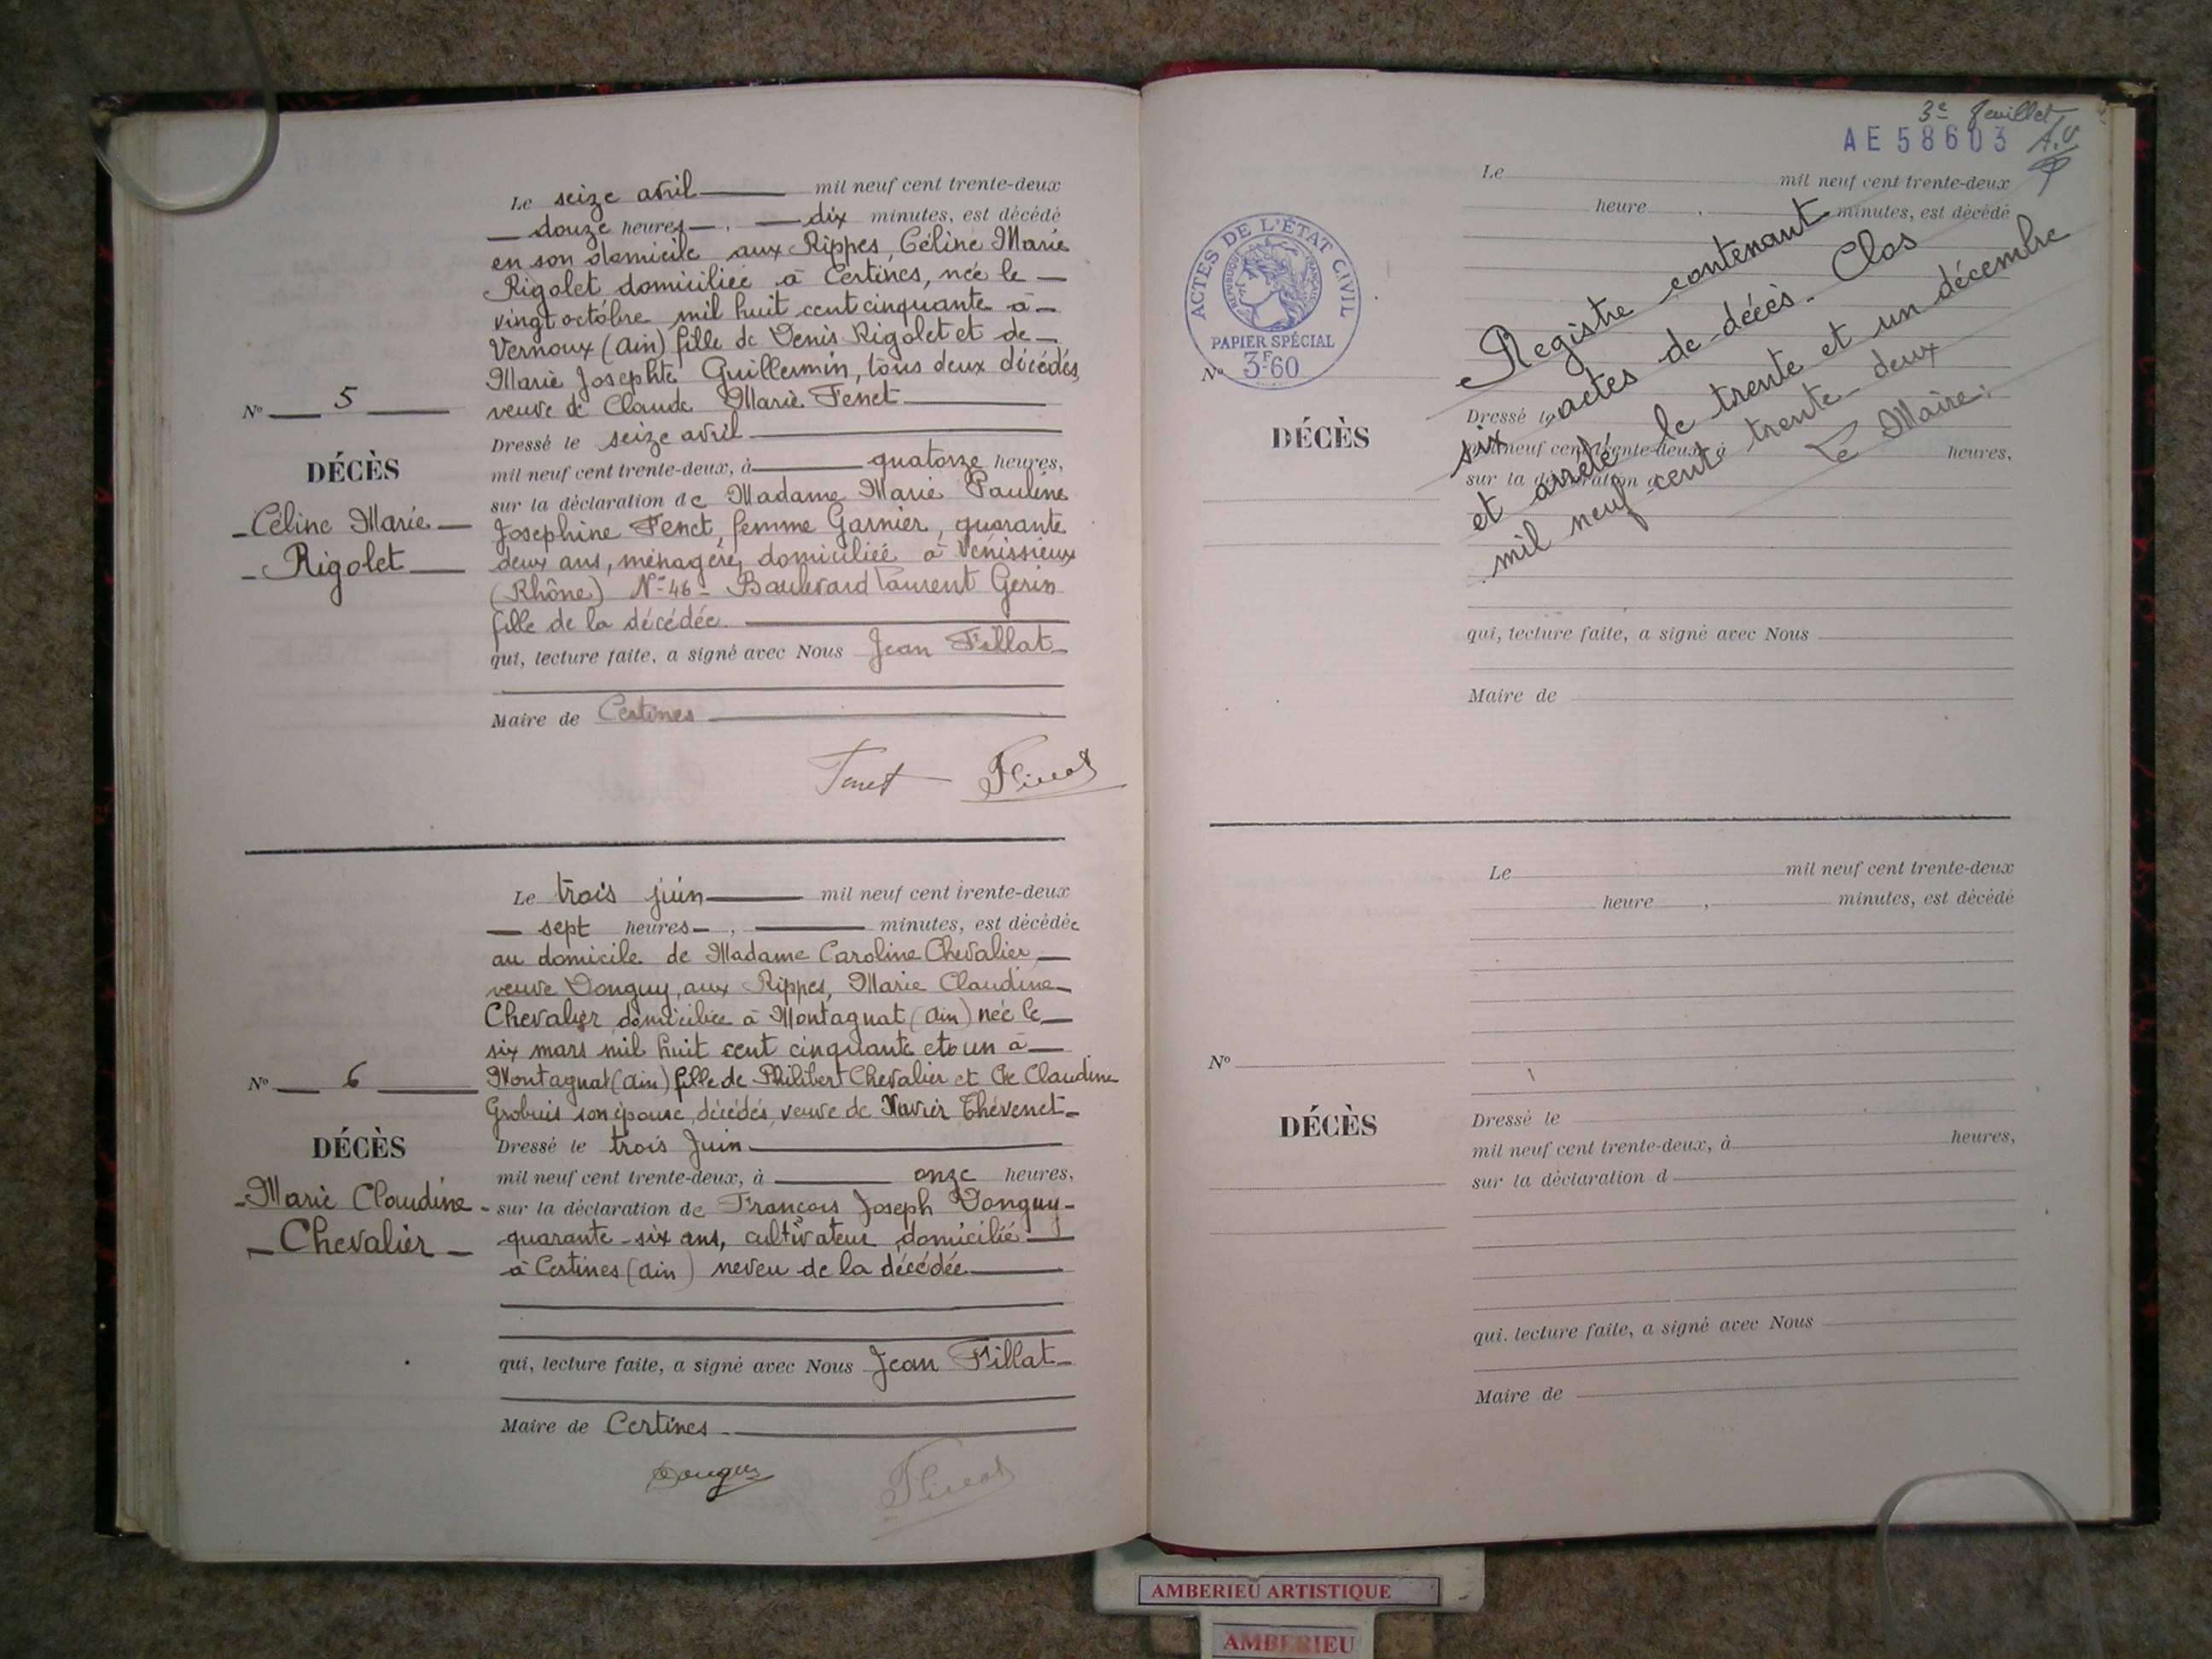 Le seize avril mil neuf cent trente-deux
douze heures, dix minutes, est décédé
en son domicile aux Rippes, Céline Marie
Rigolet domiciliée à Certines, née le
vingt octobre mil huit cent cinquante à
Vernoux (Ain) fille de Denis Rigolet et de
Marie Josephte Guillermin, tous deux décédés,
veuve de Claude Marie Fenet
Nº 5
DÉCÈS
Céline Marie
Rigolet
Dressé le seize avril
mil neuf cent trente-deux, à quatorze heures,
sur la déclaration de Madame Marie Pauline
Josephine Fenet, femme Garnier, quarante
deux ans, ménagère, domiciliée à Vénissieux
(Rhône) Nº 46 - Boulevard Laurent Gerin
fille de la décédée.
qui, lecture faite, a signé avec Nous Jean Fillat
Maire de Certines
Fenet Fillat
Le trois juin mil neuf cent trente-deux
sept heures, minutes, est décédée
au domicile de Madame Caroline Chevalier
veuve Donguy, aux Rippes, Marie Claudine
Chevalier domiciliée à Montagnat (Ain) née le
six mars mil huit cent cinquante et un à
Montagnat (Ain) fille de Philibert Chevalier et de Claudine
Grobuis son épouse, décédés, veuve de Xavier Thévenet
Nº 6
DÉCÈS
Marie Claudine
Chevalier
Dressé le trois Juin
mil neuf cent trente-deux, à onze heures,
sur la déclaration de François Joseph Donguy
quarante-six ans, cultivateur domicilié
à Certines (Ain) neveu de la décédée
qui, lecture faite, a signé avec Nous Jean Fillat
Maire de Certines
Donguy Fillat
3e feuillet
AE 58603
A.V.
ACTES DE L'ÉTAT CIVIL
RÉPUBLIQUE FRANÇAISE
PAPIER SPÉCIAL
3F60
Le mil neuf cent trente-deux
heure , minutes, est décédé
Nº
DÉCÈS
Dressé le
mil neuf cent trente-deux, à heures,
sur la déclaration d
Registre contenant
six actes de décès. Clos
et arrêté le trente et un décembre
mil neuf cent trente-deux
Le Maire:
qui, lecture faite, a signé avec Nous
Maire de
Le mil neuf cent trente-deux
heure , minutes, est décédé
Nº
DÉCÈS
Dressé le
mil neuf cent trente-deux, à heures,
sur la déclaration d
qui, lecture faite, a signé avec Nous
Maire de
AMBERIEU ARTISTIQUE
AMBERIEU